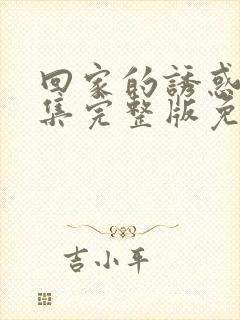 回家的誘惑
集完整版免
吉小平